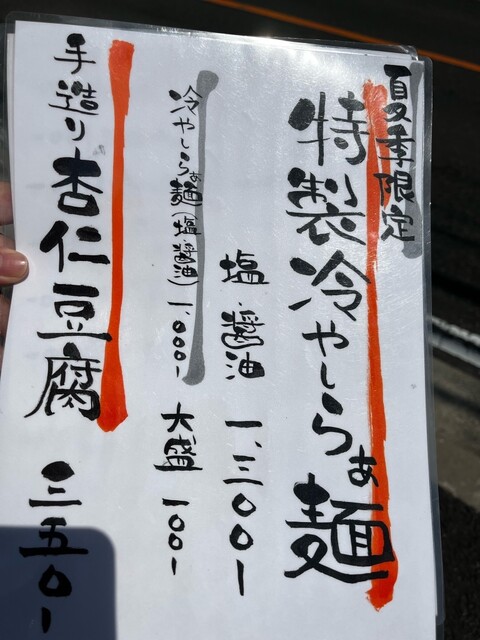 夏季限定
特製冷やしらぁ麺
塩・醤油 一、三〇〇ー
冷やしらぁ麺(塩・醤油)一、〇〇〇ー 大盛 一〇〇ー
手造り杏仁豆腐 三五〇ー